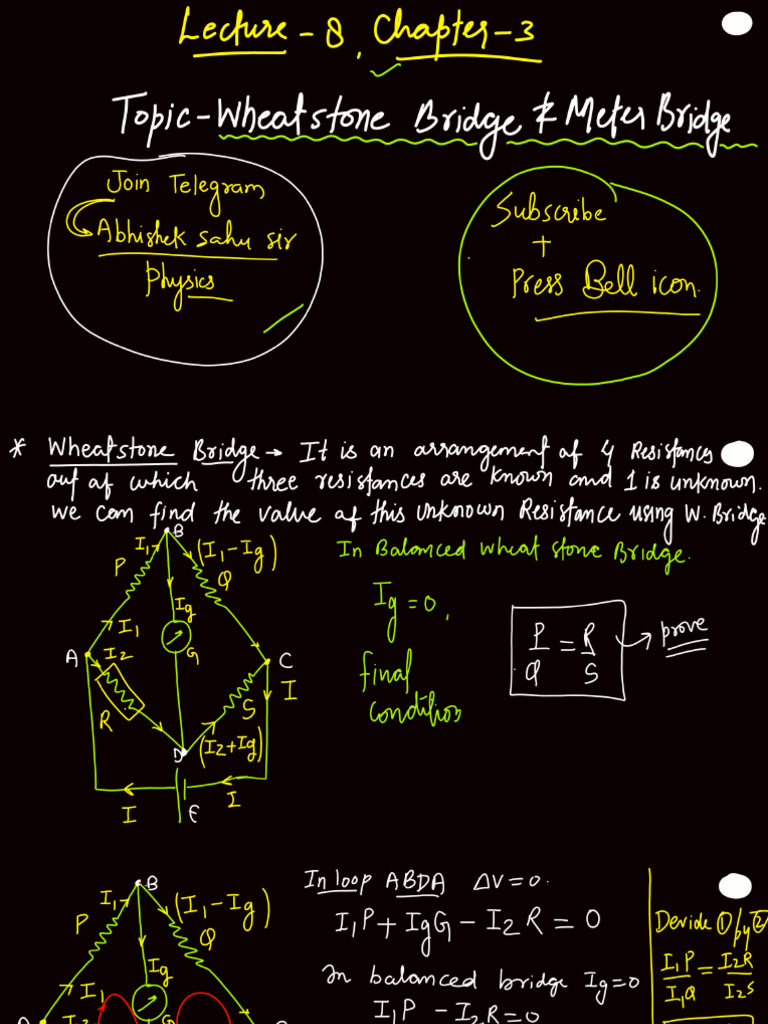 Lecture - 8, Chapter - 3
Topic - Wheatstone Bridge & Meter Bridge
Join Telegram
Abhishek sahu sir
Physics
Subscribe
+
Press Bell icon.
* Wheatstone Bridge → It is an arrangement of 4 Resistances
out of which three resistances are known and 1 is unknown.
we can find the value of this unknown Resistance using W. Bridge
B
I1
(I1 - Ig)
P
Q
Ig
I1
G
A
I2
C
I
R
S
D
(I2 + Ig)
I
I
E
In Balanced wheat stone Bridge.
Ig = 0,
final
condition
P/Q = R/S → prove
B
I1
(I1 - Ig)
P
Q
Ig
I1
I2
G
In loop ABDA ΔV = 0.
I1P + IgG - I2R = 0
In balanced bridge Ig = 0
I1P - I2R = 0
Devide ① by ②
I1P/I1Q = I2R/I2S